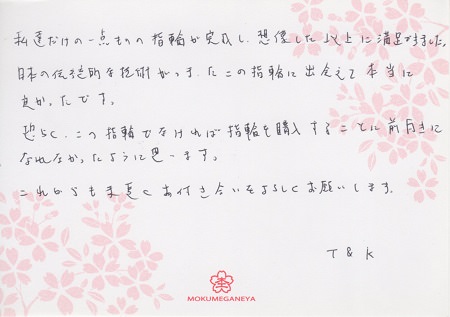 私達だけの一点ものの指輪が完成し、想像した以上に満足できました。
日本の伝統的な技術がつまったこの指輪に出会えて本当に
良かったです。
恐らく、この指輪でなければ指輪を購入することに前向きに
なれなかったように思います。
これからも末長くお付き合いをよろしくお願いします。
T & K
MOKUMEGANEYA